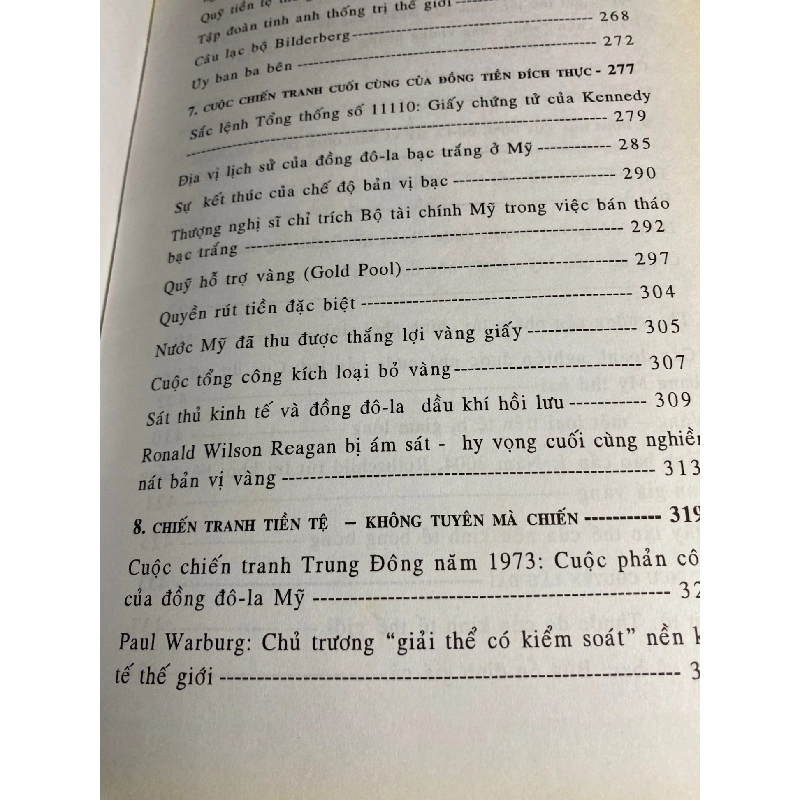 Quỹ tiền tệ
Tập đoàn tinh anh thống trị thế giới
Câu lạc bộ Bilderberg---------- 268
Ủy ban ba bên ---------- 272
7. CUỘC CHIẾN TRANH CUỐI CÙNG CỦA ĐỒNG TIỀN ĐÍCH THỰC - 277
Sắc lệnh Tổng thống số 11110: Giấy chứng tử của Kennedy
---------- 279
Địa vị lịch sử của đồng đô-la bạc trắng ở Mỹ ---------- 285
Sự kết thúc của chế độ bản vị bạc ---------- 290
Thượng nghị sĩ chỉ trích Bộ tài chính Mỹ trong việc bán tháo
bạc trắng ---------- 292
Quỹ hỗ trợ vàng (Gold Pool)---------- 297
Quyền rút tiền đặc biệt ---------- 304
Nước Mỹ đã thu được thắng lợi vàng giấy ---------- 305
Cuộc tổng công kích loại bỏ vàng---------- 307
Sát thủ kinh tế và đồng đô-la dầu khí hồi lưu ---------- 309
Ronald Wilson Reagan bị ám sát - hy vọng cuối cùng nghiền
nát bản vị vàng ---------- 313
8. CHIẾN TRANH TIỀN TỆ – KHÔNG TUYÊN MÀ CHIẾN ---------- 319
Cuộc chiến tranh Trung Đông năm 1973: Cuộc phản cô
của đồng đô-la Mỹ ---------- 32
Paul Warburg: Chủ trương “giải thể có kiểm soát” nền k
tế thế giới ---------- 3